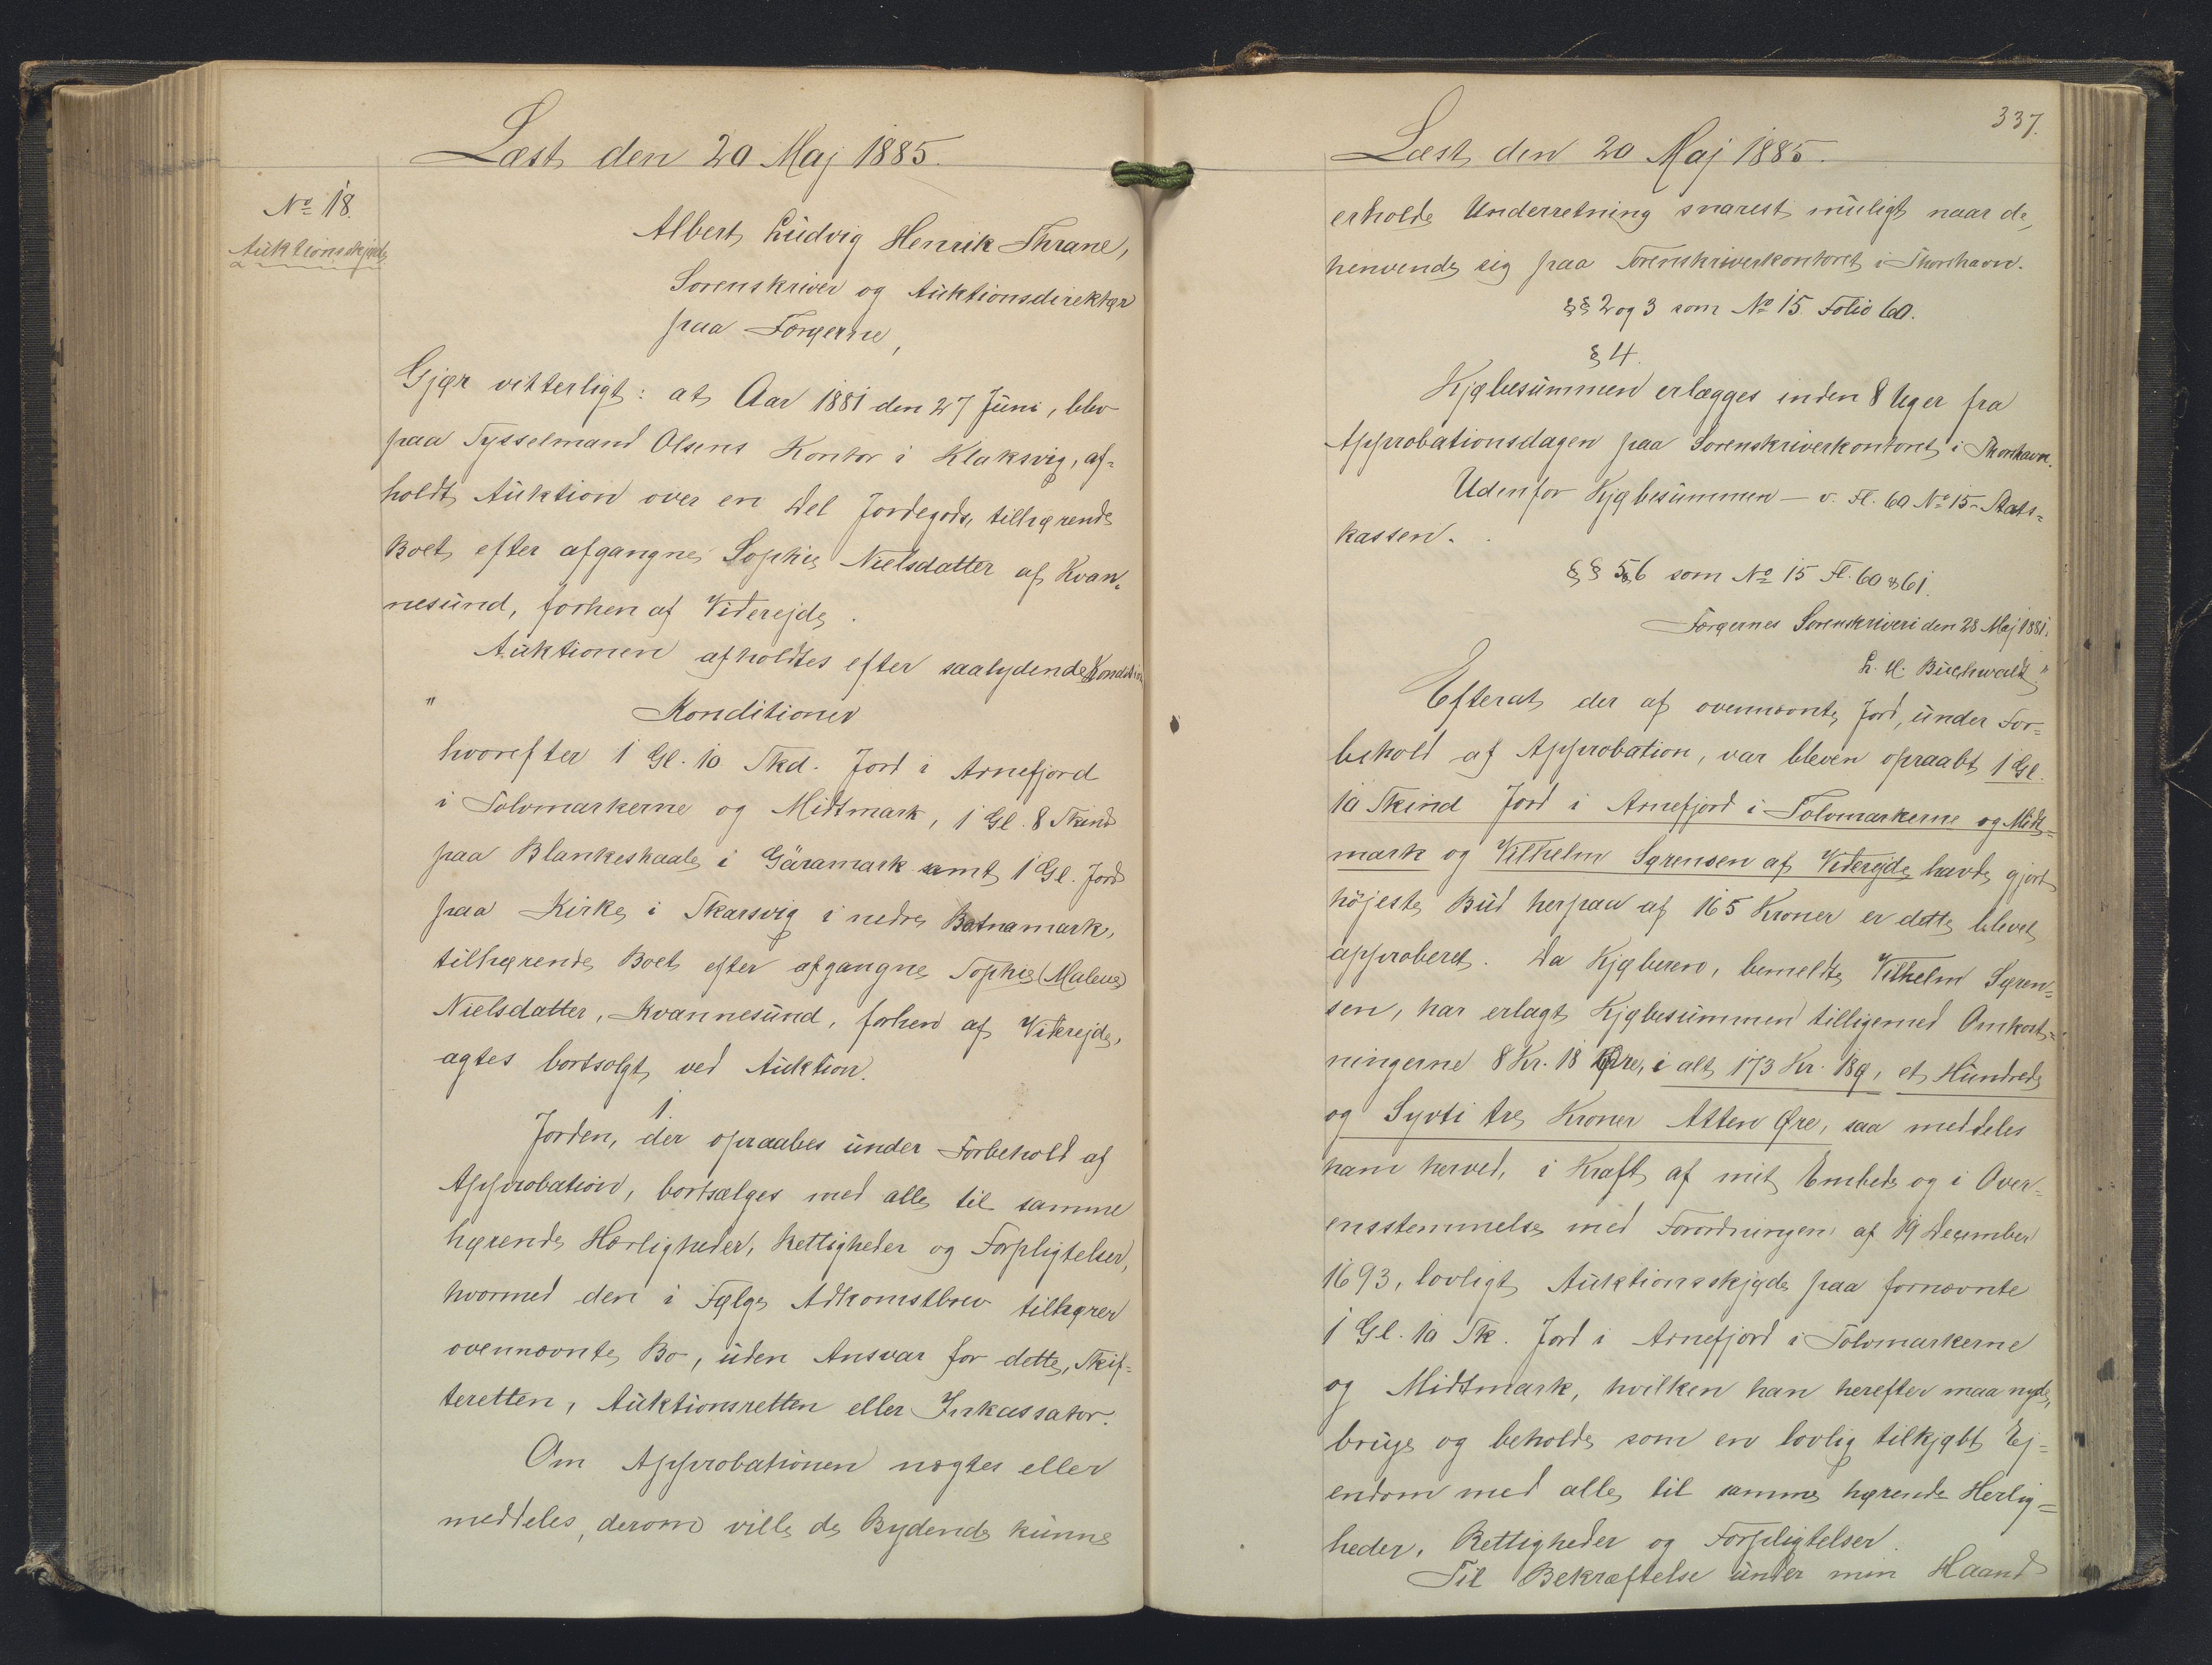 Læst den 20 Maj 1885.
No 18.
Auktionsskjøde
Albert Ludvig Henrik Thrane,
Sorenskriver og Auktionsdirektør
paa Færøerne,
Gjør vitterligt: at Aar 1881 den 27 Juni, blev
paa Sysselmand Olsens Kontor i Klaksvig, af=
holdt Auktion over en Del Jordegods, tilhørende
Boet efter afgangne Sophie Nielsdatter af Kvan=
nesund, forhen af Viderejde.
Auktionen afholdtes efter saalydende
" Konditioner
hvorefter 1 Gl. 10 Skd. Jord i Arnefjord
i Tolvmarkerne og Midtmark, 1 Gl. 8 Skind
paa Blankeskaale i Garamark samt 1 Gl. Jord
paa Kirke i Skarsvig i nedre Batnamark,
tilhørende Boet efter afgangne Sophie (Malene)
Nielsdatter, Kvannesund, forhen af Viderejde,
agtes bortsolgt ved Auktion.
1.
Jorden, der opraabes under Forbehold af
Approbation, bortsælges med alle til samme
hørende Herligheder, Rettigheder og Forpligtelser,
hvormed den i Følge Adkomstbrev tilhører
ovennævnte Bo, uden Ansvar for dette, Skif=
teretten, Auktionsretten eller Inkassator.
Om Approbationen nægtes eller
meddeles, derom ville de Bydende kunne
337.
Læst den 20 Maj 1885.
erholde Underretning snarest muligt naar de
henvende sig paa Sorenskriverkontoret i Thorshavn.
§§ 2 og 3 som No 15 Folio 60.
§ 4.
Kjøbesummen erlægges inden 8 Uger fra
Approbationsdagen paa Sorenskriverkontoret i Thorshavn.
Udenfor Kjøbesummen – v. Fl. 60 No 15 – Stats=
kassen.
§§ 5 & 6 som No 15 Fl. 60 & 61.
Færøernes Sorenskriveri den 28 Maj 1881.
L. M. Buchwaldt"
Efterat der af ovennævnte Jord, under For=
behold af Approbation, var bleven opraabt 1 Gl.
10 Skind Jord i Arnefjord i Tolvmarkerne og Midt=
mark og Vilhelm Sørensen af Viderejde havde gjort
højeste Bud herpaa af 165 Kroner er dette blevet
approberet. Da Kjøberen, bemeldte Vilhelm Søren=
sen, har erlagt Kjøbesummen tilligemed Omkost=
ningerne 8 Kr. 18 Øre, i alt 173 Kr. 18 Ø, et Hundrede
og Syvti tre Kroner Atten Øre, saa meddeles
ham herved, i Kraft af mit Embede og i Over=
ensstemmelse med Forordningen af 19 December
1693, lovligt Auktionsskjøde paa fornævnte
1 Gl. 10 Sk. Jord i Arnefjord i Tolvmarkerne
og Midtmark, hvilken han herefter maa nyde,
bruge og beholde som en lovlig tilkjøbt Ej=
endom med alle til samme hørende Herlig=
heder, Rettigheder og Forpligtelser.
Til Bekræftelse under min Haand